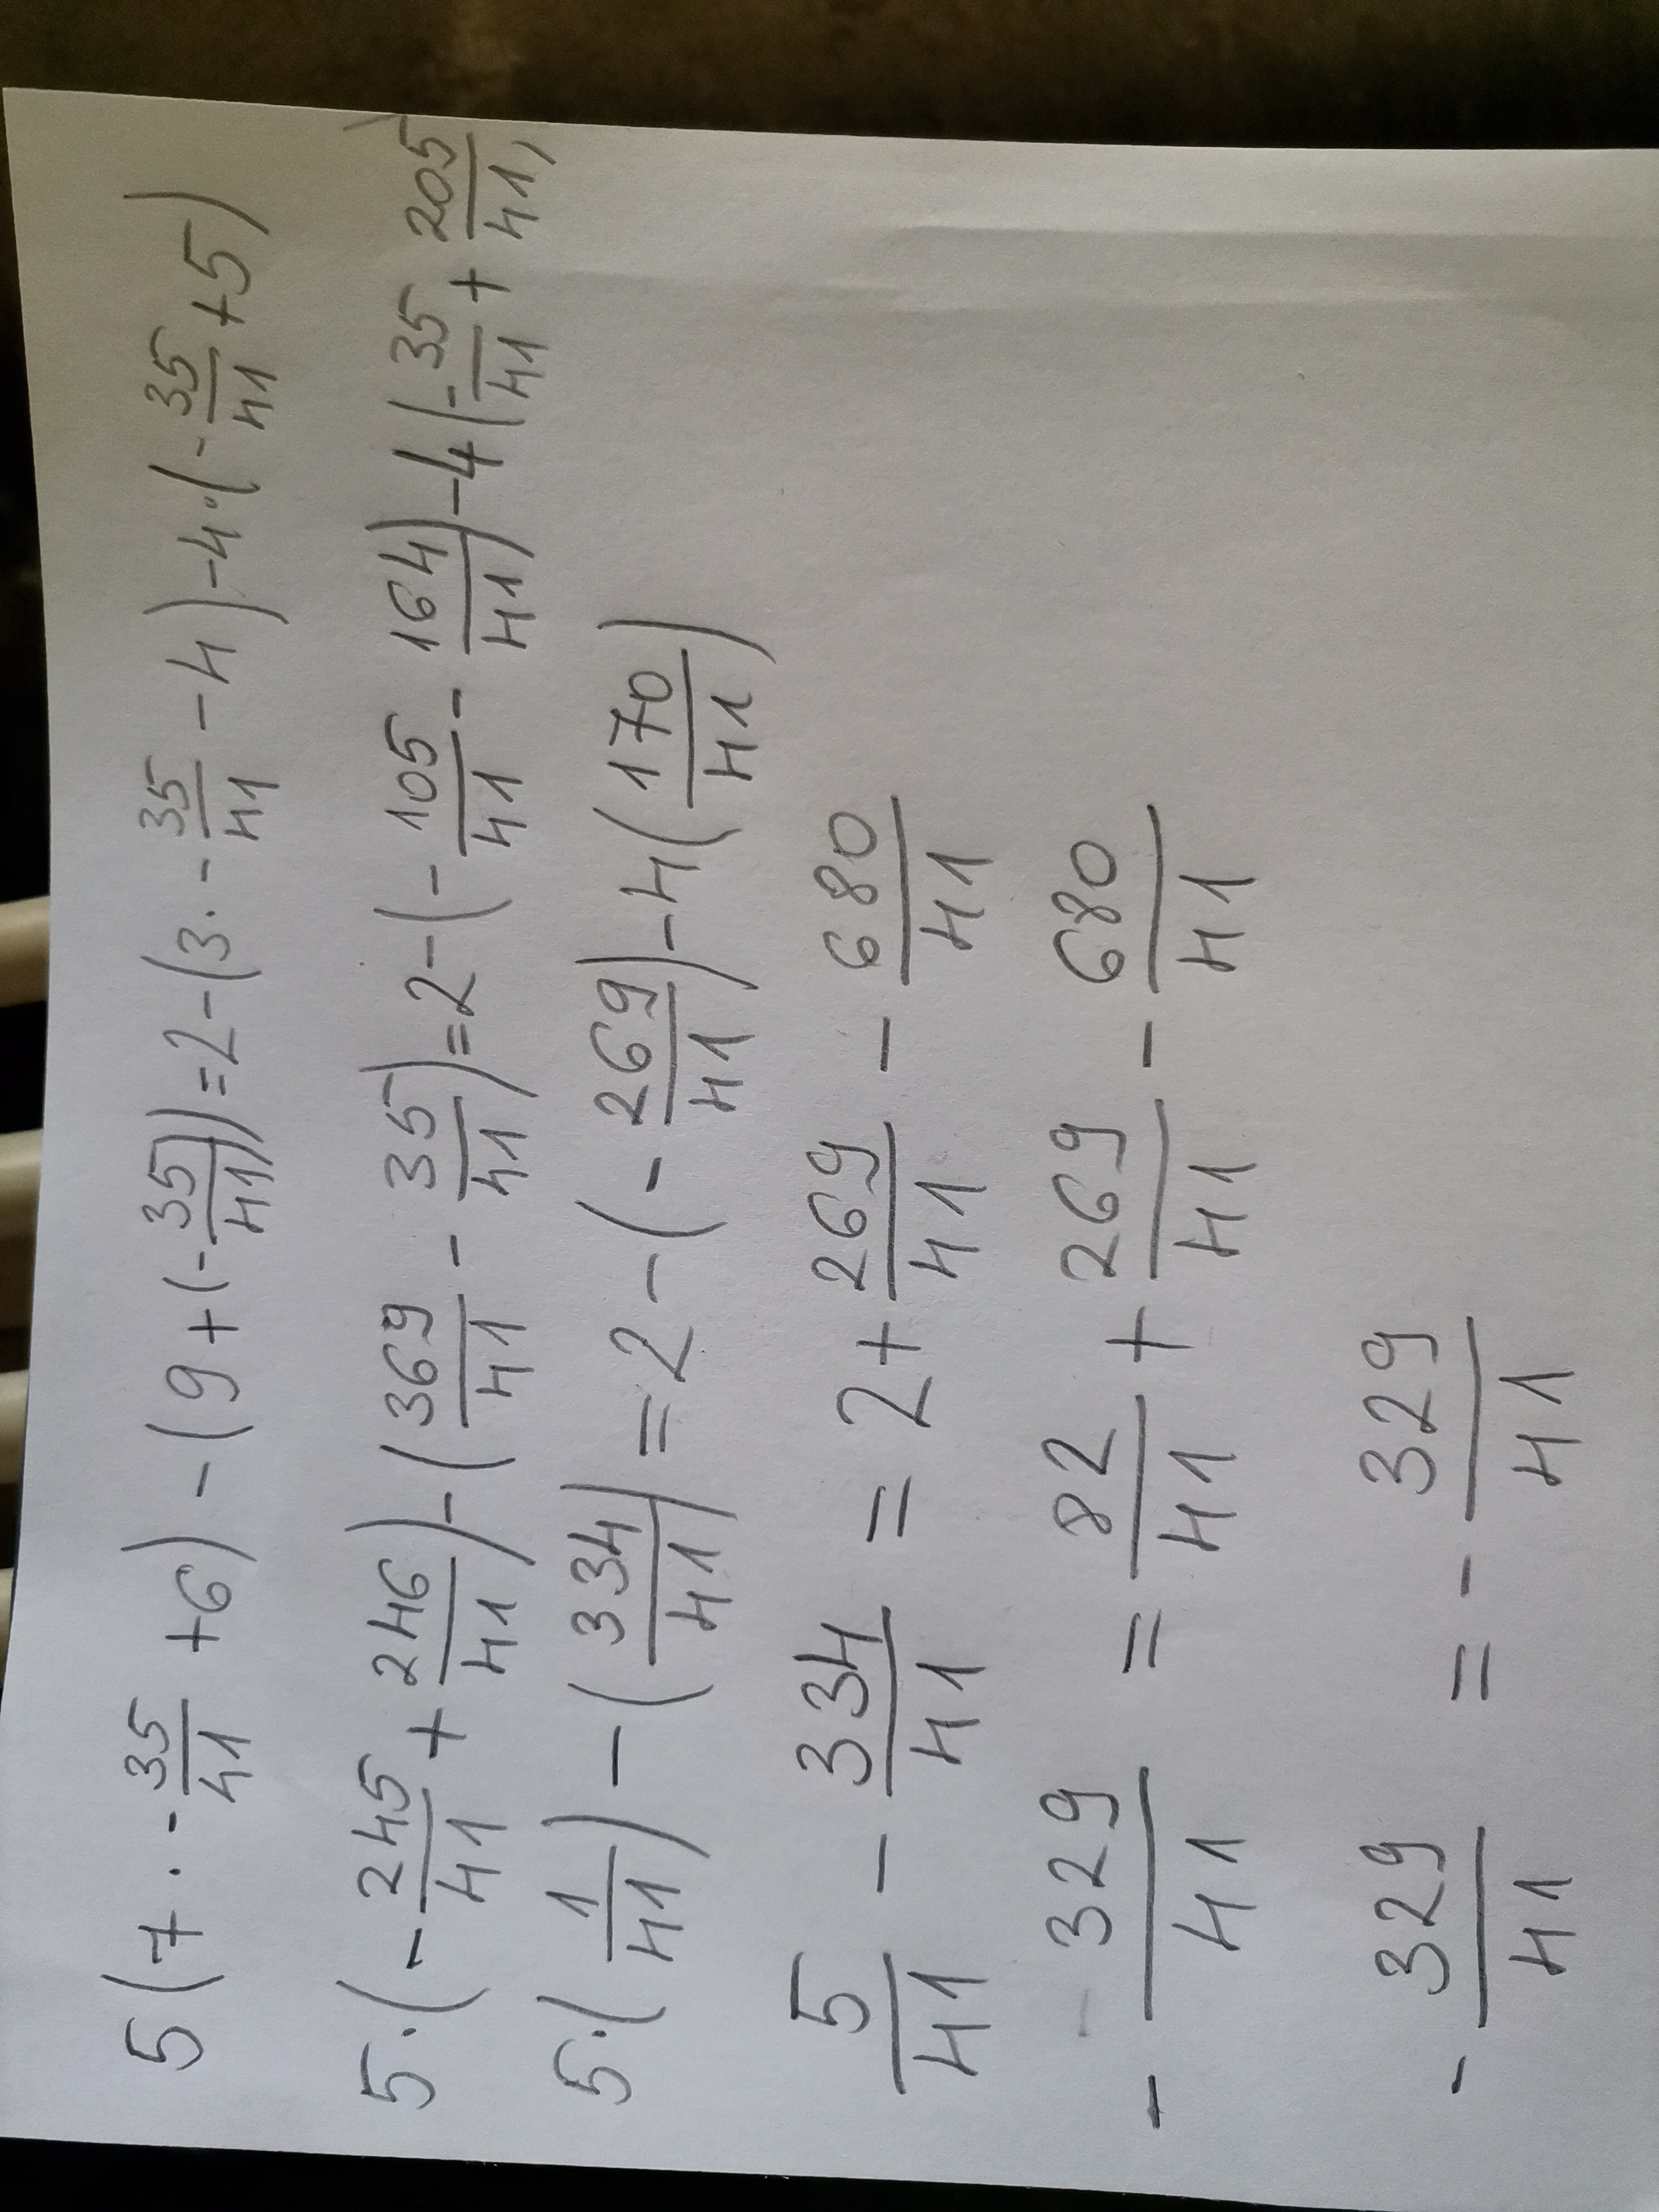 5(7·-35/41+6)-(9+(-35/41))=2-(3·-35/41-4)-4·(-35/41+5)
5·(-245/41+246/41)-(369/41-35/41)=2-(-105/41-164/41)-4(-35/41+205/41)
5·(1/41)-(334/41)=2-(-269/41)-4(170/41)
5/41-334/41=2+269/41-680/41
-329/41=82/41+269/41-680/41
-329/41=-329/41